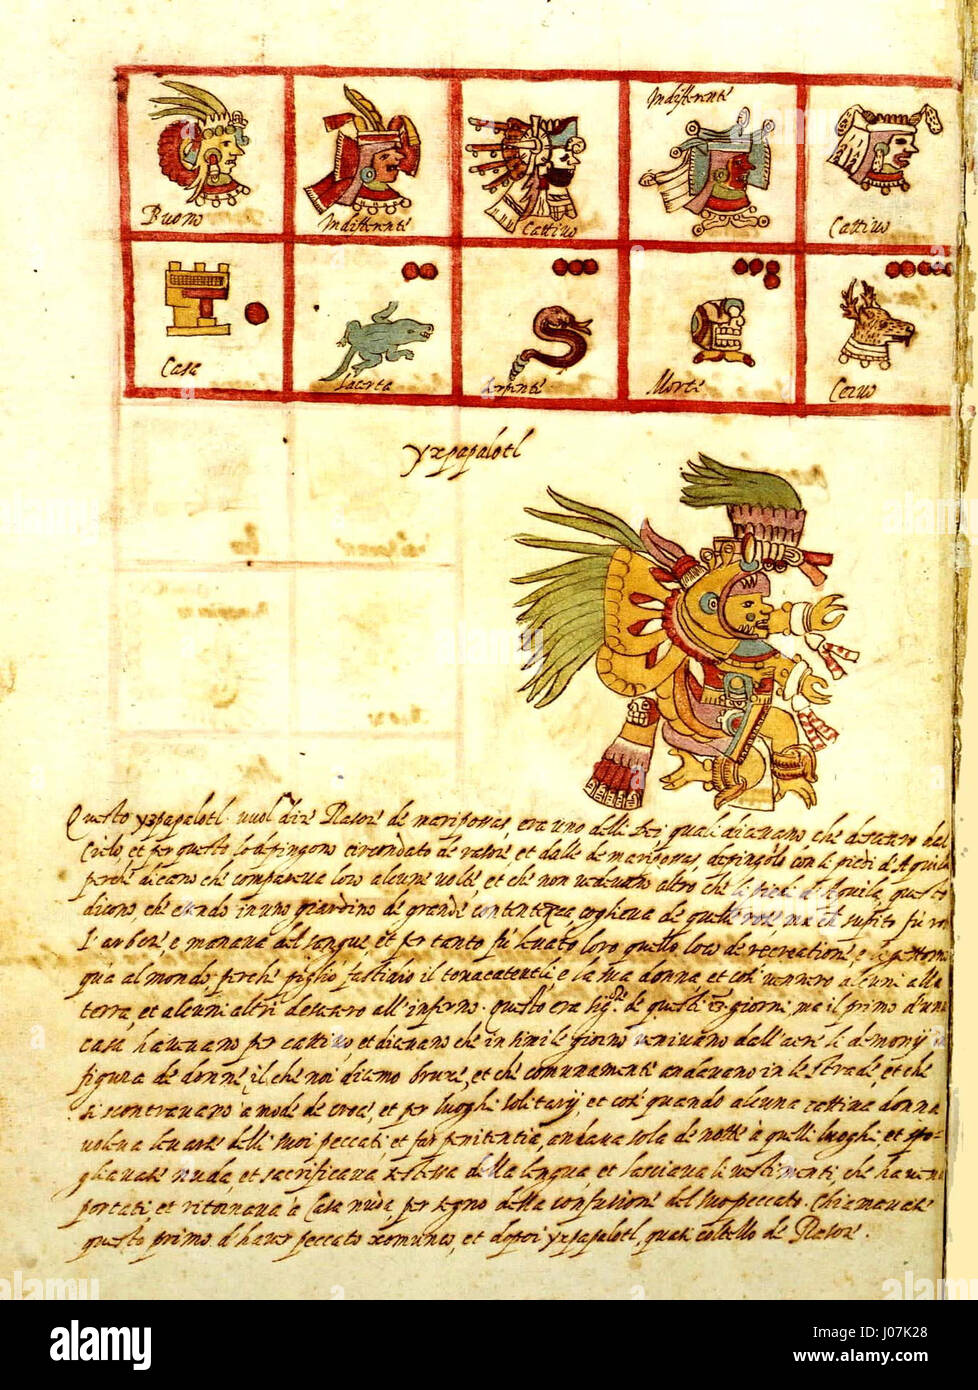 Indifferenté
Buono
Indifferenté
Cattiuo
Cattiuo
Casa
Lacerta
Serpenté
Morté
Ceruo
yxpapalotl
Questo yzpapalotl. uuol diré Rasoré de mariposas, era uno delli Dei quali diceuano, ché descesero dal
Cielo, et per questo lo depingono circondato de rasoré, et dalle de mariposas, depingolo con li piedi d'Aquila
perché dicano ché compareua loro alcuné uolté, et ché non uedeuano altro ché li piedi di Aquila, questo
dicono, ché essendo in uno giardino dé grandé contentezza coglieua dé quellé rosé, ma ch' subito fu ro
l'arboré, e manaua del sangué, et per tanto fù leuato loro quello loco dé recreationé, e
quà al mondo, perché pigliò fastidio il tonacatentli, e la sua donna, et cosi uennero alcuni alla
terra, et alcuni altri descesero all'inferno. questo era sigre dé questi 13 giorni, ma il primo d'una
casa haueuano per cattiuo, et diceuano ché in simile giorno ueniuano dall'aere li demonij
figura dé donné, il ché noi diciamo bruxé, et ché comunamenté andauano in lé stradé, et ché
si scontrauano a modé dé crocé, et per luoghi solitarij, et così quando alcuna cattiua donna
uoleua leuarsé delli suoi peccati, et far penitentia, andaua sola dé notté à quelli luoghi, et spo-
gliauasé nuda, et sacrificaua sé stessa della lengua, et lasciaua li uestimenti, ché haueua
portati, et ritornaua à Casa nuda, per segno della confusioné del suo peccato. Chiamauasé
questo primo d'hauer peccato xomunco, et dopoi yxpapalotl, quasi coltello dé Rasoré.
alamy
alamy
Image ID: J07K28
www.alamy.com